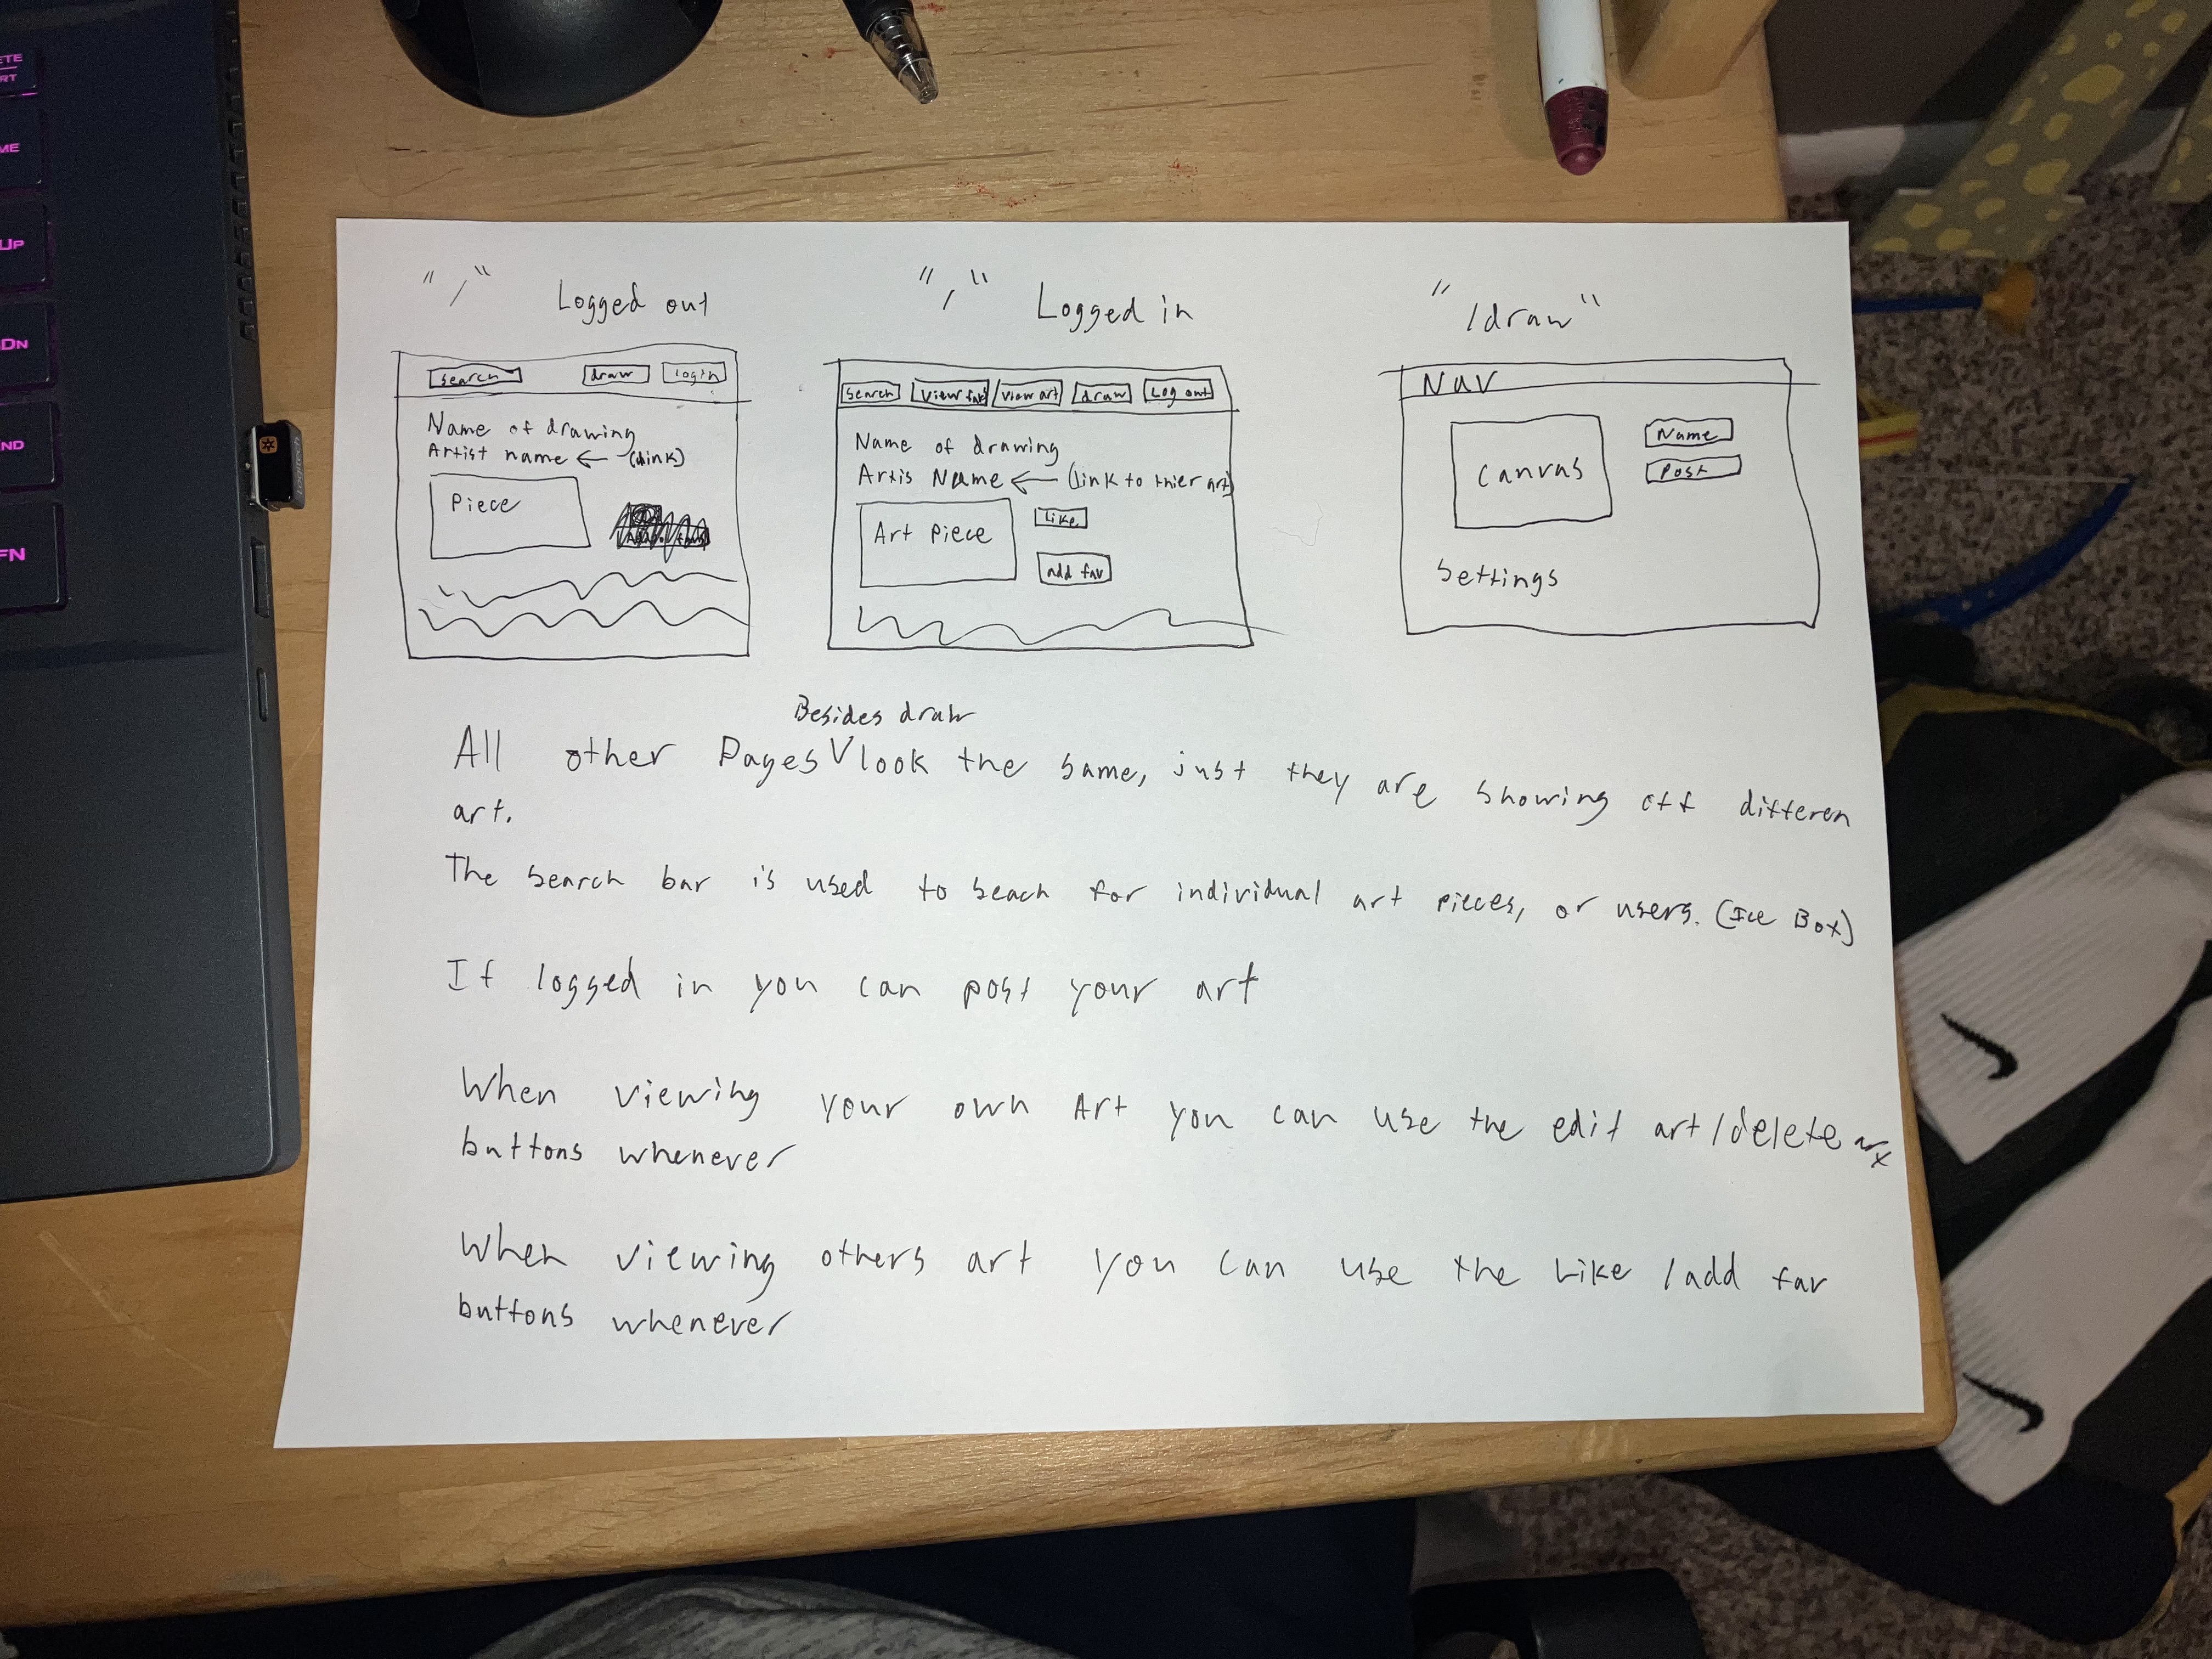 "/" Logged out
search draw login
Name of drawing
Artist name ← (link)
Piece
"/" Logged in
Search View fav View art draw Log out
Name of drawing
Artis Name ← (link to thier art)
Art Piece
Like
add fav
"/draw"
Nav
Canvas
Name
Post
Settings
Besides draw
All other Pages V look the same, just they are showing off differen
art.
The search bar is used to seach for individual art pieces, or users. (Ice Box)
If logged in you can post your art
When viewing your own Art you can use the edit art/delete
buttons whenever
When viewing others art you can use the Like /add fav
buttons whenever
ME
UP
DN
ND
FN
logitech